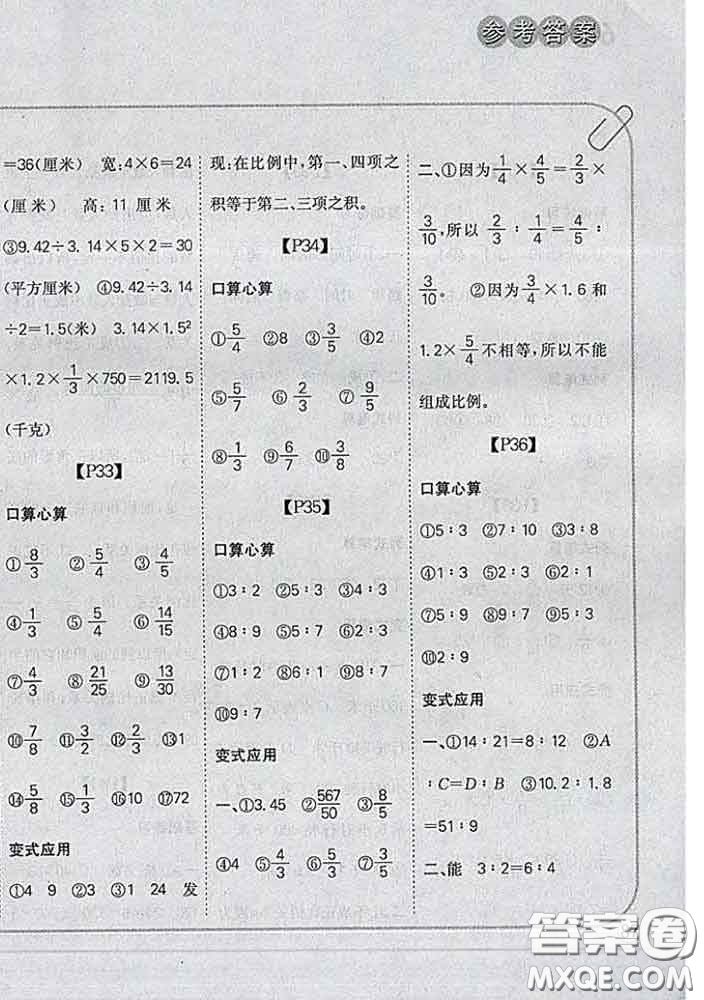 参考答案
=36(厘米) 宽:4×6=24
(厘米) 高:11 厘米
③9.42÷3.14×5×2=30
(平方厘米) ④9.42÷3.14
÷2=1.5(米) 3.14×1.5²
×1.2×1/3×750=2119.5
(千克)
【P33】
口算心算
①8/3 ②5/4 ③4/5
④1/3 ⑤5/4 ⑥14/15
⑦4/3 ⑧21/25 ⑨13/30
⑩7/8 ⑪3/2 ⑫3/2 ⑬1
⑭5/8 ⑮1/3 ⑯10 ⑰72
变式应用
①4 9 ②3 ③1 24 发
现:在比例中,第一、四项之
积等于第二、三项之积。
【P34】
口算心算
①5/4 ②8 ③3/5 ④2
⑤5/7 ⑥2/3 ⑦9/5
⑧1/3 ⑨1/3 ⑩3/8
【P35】
口算心算
①3∶2 ②5∶3 ③4∶3
④8∶9 ⑤5∶1 ⑥2∶3
⑦1∶2 ⑧6∶1 ⑨1∶3
⑩9∶7
变式应用
一、①3.45 ②567/50 ③8/5
④4 ⑤4/3 ⑥5/3 ⑦3/2
二、①因为1/4×4/5=2/3×
3/10,所以2/3∶1/4=4/5∶
3/10。 ②因为3/4×1.6和
1.2×5/4不相等,所以不能
组成比例。
【P36】
口算心算
①5∶3 ②7∶10 ③3∶8
④1∶3 ⑤2∶1 ⑥2∶1
⑦5∶9 ⑧9∶7 ⑨5∶3
⑩2∶9
变式应用
一、①14∶21=8∶12 ②A
∶C=D∶B ③10.2∶1.8
=51∶9
二、能 3∶2=6∶4
答案圈
MXQE.COM